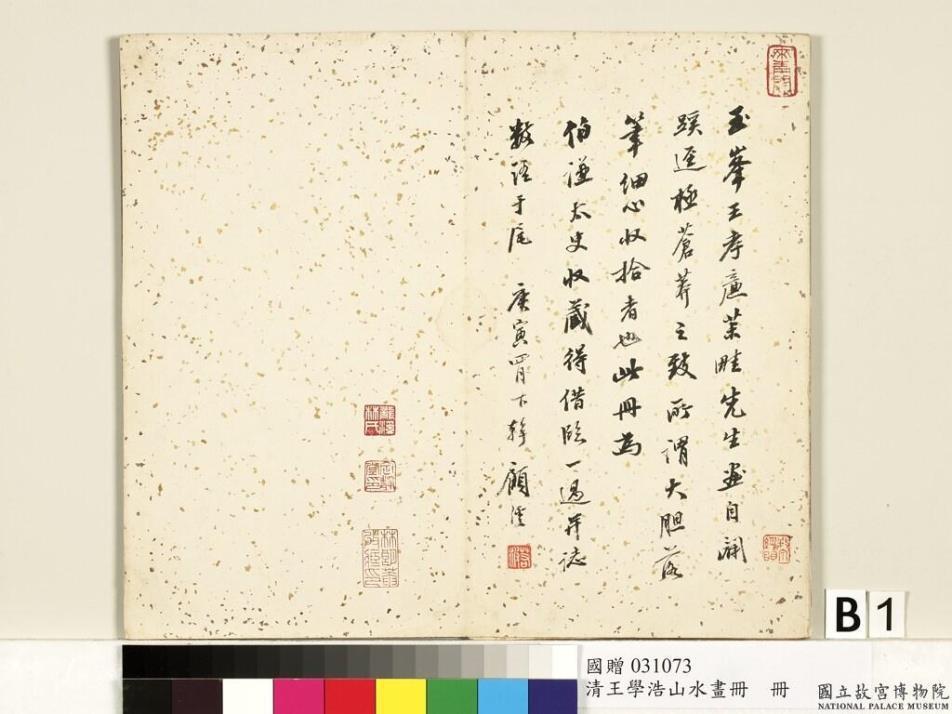 玉峯王孝廉茉畦先生画自闢
蹊逕極蒼莽之致所謂大胆落
筆細心收拾者也此冊為
伯謙太史收藏得借臨一過并誌
數語于尾 庚寅四月下澣 顧澐
B 1
國贈 031073
清王學浩山水畫冊 冊
國立故宮博物院
NATIONAL PALACE MUSEUM